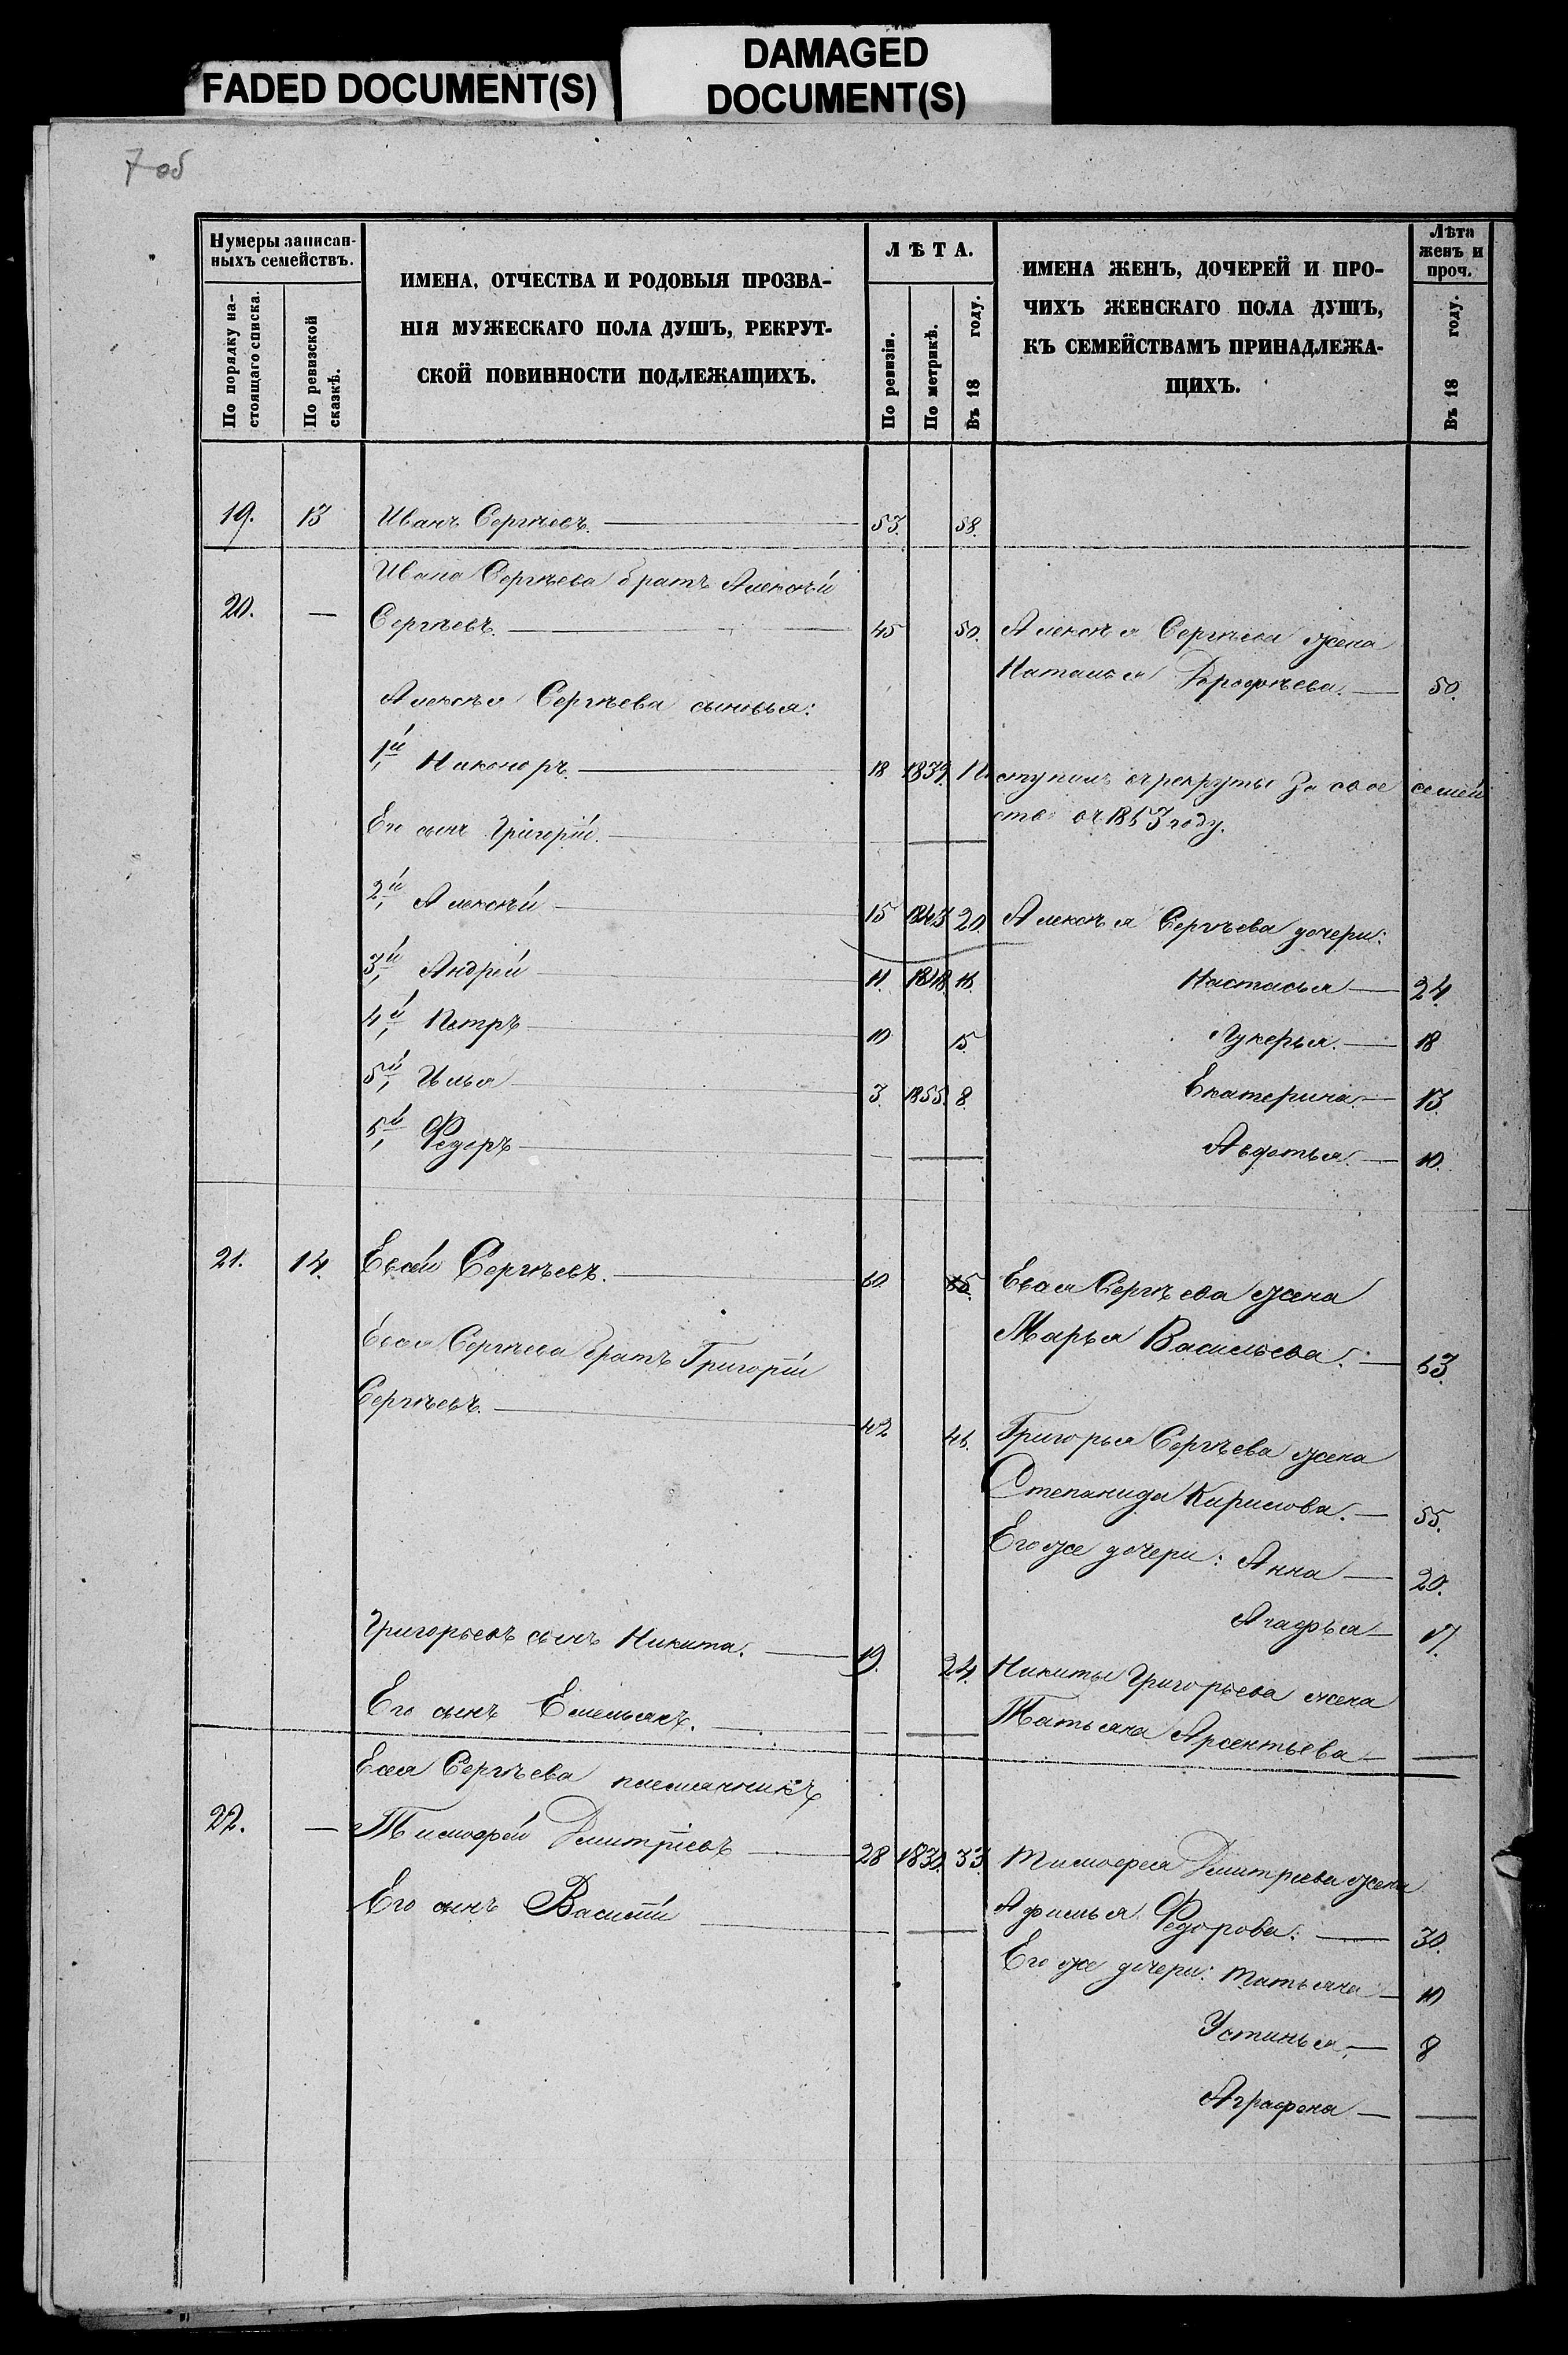 FADED DOCUMENT(S)
DAMAGED
DOCUMENT(S)
7 об
Нумеры записан-
ныхъ семействъ.
По порядку на-
стоящаго списка.
По ревизской
сказкѣ.
ИМЕНА, ОТЧЕСТВА И РОДОВЫЯ ПРОЗВА-
НІЯ МУЖЕСКАГО ПОЛА ДУШЪ, РЕКРУТ-
СКОЙ ПОВИННОСТИ ПОДЛЕЖАЩИХЪ.
ЛѢТА.
По ревизіи.
По метрикѣ.
Въ 18 году.
ИМЕНА ЖЕНЪ, ДОЧЕРЕЙ И ПРО-
ЧИХЪ ЖЕНСКАГО ПОЛА ДУШЪ,
КЪ СЕМЕЙСТВАМЪ ПРИНАДЛЕЖА-
ЩИХЪ.
Лѣта
женъ и
проч.
Въ 18 году.
19. 13 Иванъ Сергѣевъ. 53. 58.
Ивана Сергѣева братъ Алексѣй
20. — Сергѣевъ. 45 50. Алексѣя Сергѣева жена
Наталья Дорофѣева. — 50.
Алексѣя Сергѣева сыновья:
1й Никоноръ. 18 1839. ступилъ въ рекруты за свое семей
ство въ 1853 году.
Его сынъ Григорій. —
2й Алексѣй 15 1843 20. Алексѣя Сергѣева дочери:
3й Андрей 11. 1848. 16. Настасья — 24.
4й Петръ 10 15. Лукерья. — 18
5й Илья 3. 1855. 8. Екатерина. — 13.
5й Федоръ — Авдотья. — 10.
21. 14. Евсѣй Сергѣевъ. 60. 65. Евсея Сергѣева жена
Марья Васильева. — 63.
Евсея Сергѣева братъ Григорій
Сергѣевъ. 42 46. Григорья Сергѣева жена
Степанида Кирилова. — 55.
Его же дочери: Анна — 20.
Агафья — 17.
Григорьевъ сынъ Никита. 19. 24. Никиты Григорьева жена
Его сынъ Емельянъ. — Татьяна Арсентьева —
Евсея Сергѣева племянникъ
22. — Тимофей Дмитріевъ 28 1830. 33. Тимофея Дмитріева жена
Его сынъ Василій — Афимья Федорова. — 30.
Его же дочери: Татьяна — 10
Устинья. — 8
Аграфена —